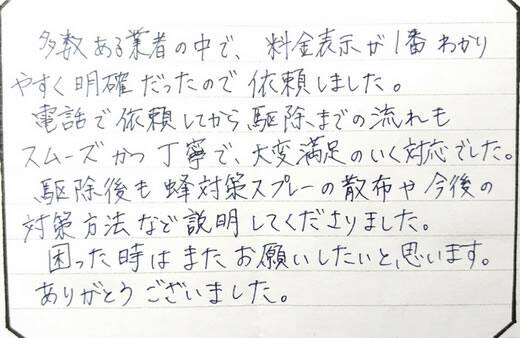 多数ある業者の中で、料金表示が1番わかり
やすく明確だったので依頼しました。
電話で依頼してから駆除までの流れも
スムーズかつ丁寧で、大変満足のいく対応でした。
駆除後も蜂対策スプレーの散布や今後の
対策方法など説明してくださりました。
困った時はまたお願いしたいと思います。
ありがとうございました。